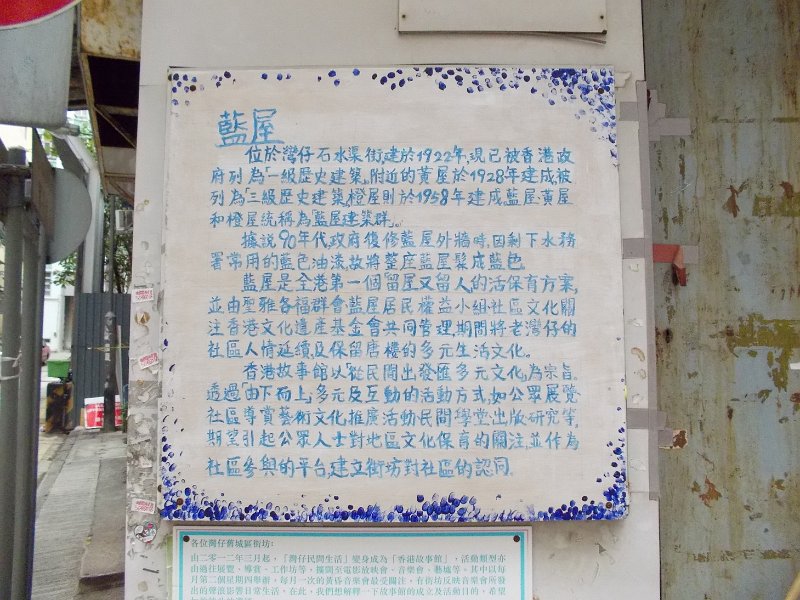 藍屋
位於灣仔石水渠街,建於1922年,現已被香港政
府列為「一級歷史建築」,附近的黃屋於1928年建成,被
列為「三級歷史建築」,橙屋則於1958年建成,藍屋、黃屋
和橙屋統稱為「藍屋建築群」。
據說90年代,政府復修藍屋外牆時,因剩下水務
署常用的藍色油漆,故將整座藍屋髹成藍色。
藍屋是全港第一個留屋又留人的活保育方案,
並由聖雅各福群會、藍屋居民權益小組、社區文化關
注香港文化遺產基金會共同管理,期間將老灣仔的
社區人情延續,及保留唐樓的多元生活文化。
香港故事館以「從民間出發,匯多元文化」為宗旨。
透過「由下而上」,多元及互動的活動方式,如公眾展覽、
社區導賞、藝術文化推廣活動、民間學堂、出版研究等,
期望引起公眾人士對地區文化保育的關注,並作為
社區參與的平台,建立街坊對社區的認同。
各位灣仔舊城區街坊:
由二零一二年三月起,「灣仔民間生活」變身成為「香港故事館」,活動類型亦
由過往展覽、導賞、工作坊等,擴闊至電影放映會、音樂會、墟等。其中以每
月第二個星期四舉辦,每月一次的黃昏音樂會最受關注,有街坊反映音樂會所發
出的聲浪影響日常生活,在此,我們想解釋一下故事館的成立及活動目的,希望